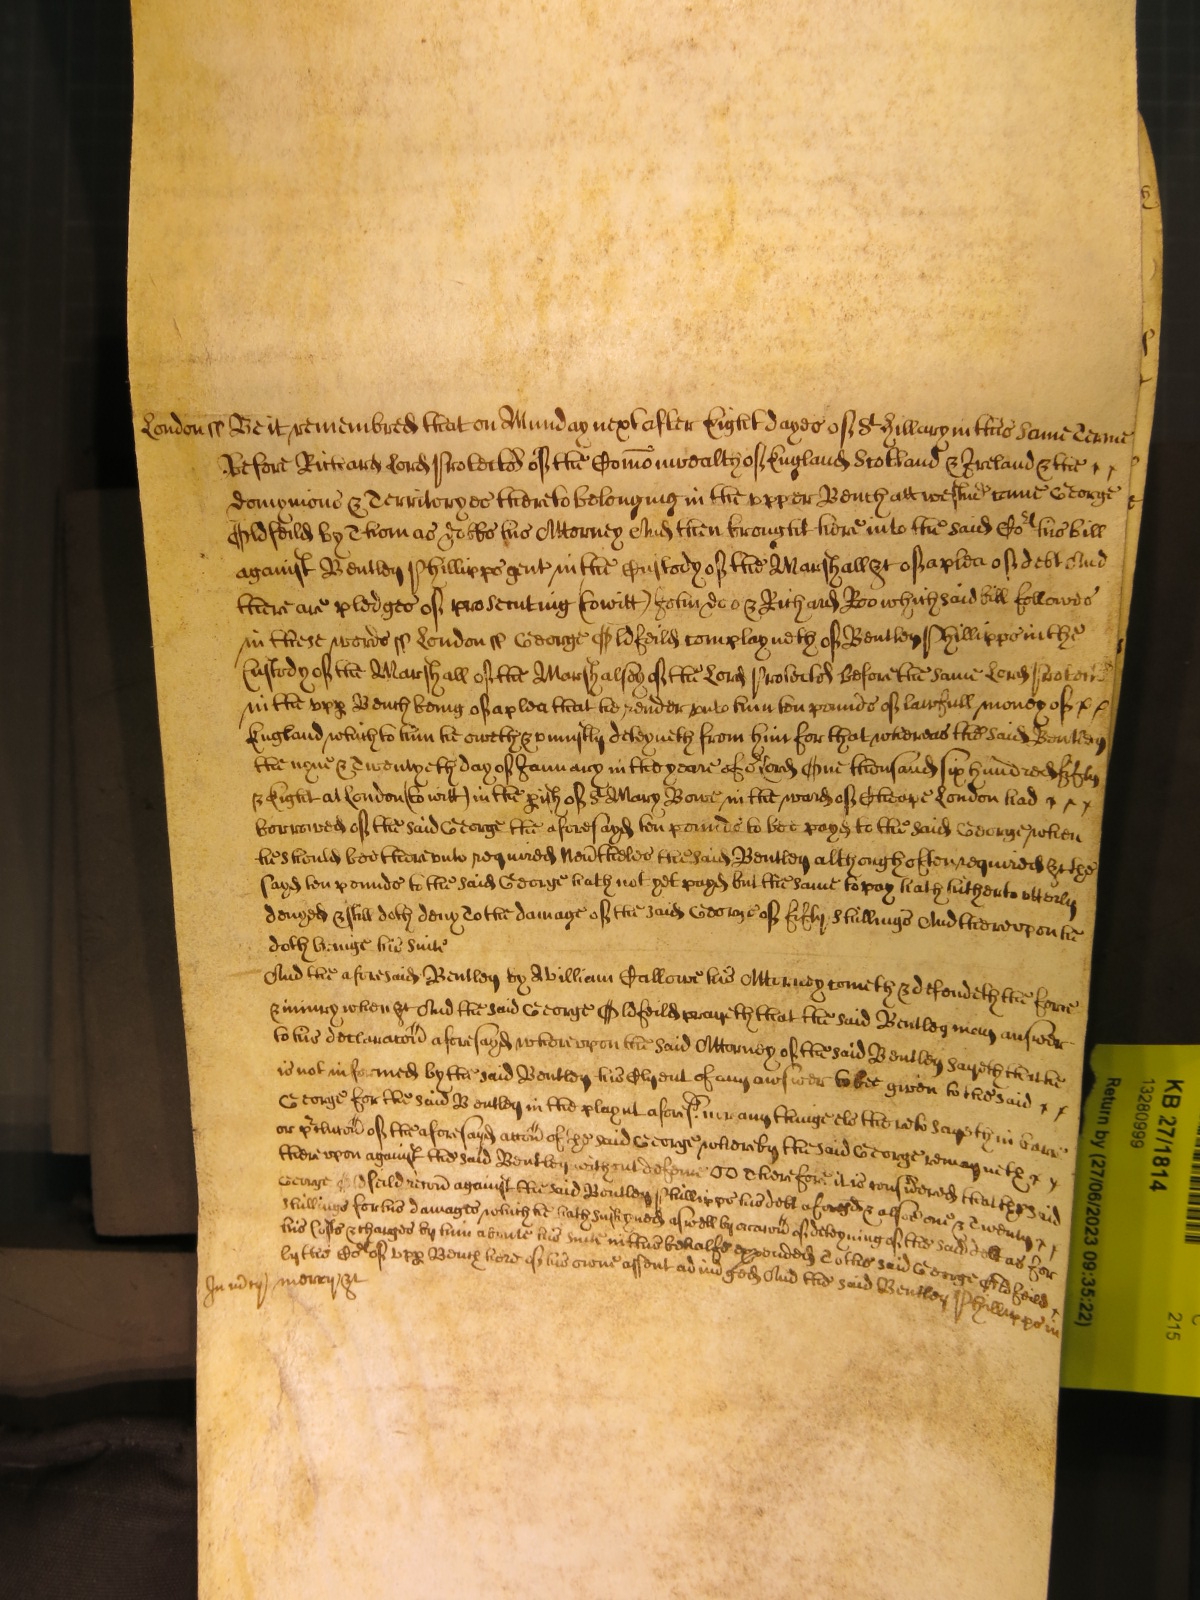 London ss Be it remembred that on Munday next after Eight dayes of St Hillary in this same Terme
Before Richard Lord Protector of the Comonwealth of England Scotland & Ireland & the
domynions & Territoryes thereto belonging in the upper Bench att Westmr came George
Oldfeild by Thomas his Attorney And then brought here into the said Cort his bill
against Bentley Phillipps gent in the Custody of the Marshall &c of a plea of debt And
there are pledges of prosecuting (towitt) John doo & Richard Roo which said bill followes
in these words ss London ss George Oldfeild complayneth of Bentley Phillipps in the
Custody of the Marshall of the Marshalsey of the Lord Protector before the same Lord Protector
in the upp Bench being of a plea that he render unto him ten pounds of lawfull money of
England which to him he oweth & uniustly deteyneth from him for that whereas the said Bentley
the nyne & Twentyeth day of January in the yeare of or Lord One thousand six hundred fifty
& Eight at London (towitt) in the pish of St Mary Bowe in the ward of Cheape London had
borrowed of the said George the aforesayd ten pounds to bee payd to the said George when
he should bee thereunto required Nevtheles the said Bentley although often required &c the
sayd ten pounds to the said George hath not yet payd but the same to pay hath hitherto utterly
denyed & still doth deny To the damage of the said George of fifty Shillings And thereupon he
doth bringe his suite
And the aforesaid Bentley by William Callowe his Attorney cometh & defendeth the force
& iniury when &c And the said George Oldfeild prayeth that the said Bentley may answer
to his declaracon aforesayd whereupon the said Attorney of the said Bentley sayeth that he
is not informed by the said Bentley his Clyent of any answer to bee given to the said
George for the said Bentley in the playnt aforesd nor any thinge els thereto sayeth in barre
or pclusion of the aforesayd accon of the said George whereby the said George remayneth
thereupon against the said Bentley without defence Therefore it is considered that the said
George Oldfeild recou against the said Bentley Phillipps his debt aforesd & alsoe one & Twenty
shillings for his damages which he hath susteyned aswell by occacon of deteyning of the said debt as for
his Costs & charges by him aboute his suite in this behalfe expended To the said George Oldfeild
by the Cort of upp Bench here of his owne assent adiudged And the said Bentley Phillipps in
In mcy mercy &c
KB 27/1814
13280999
Return by (27/06/2023 09:35:22)
215